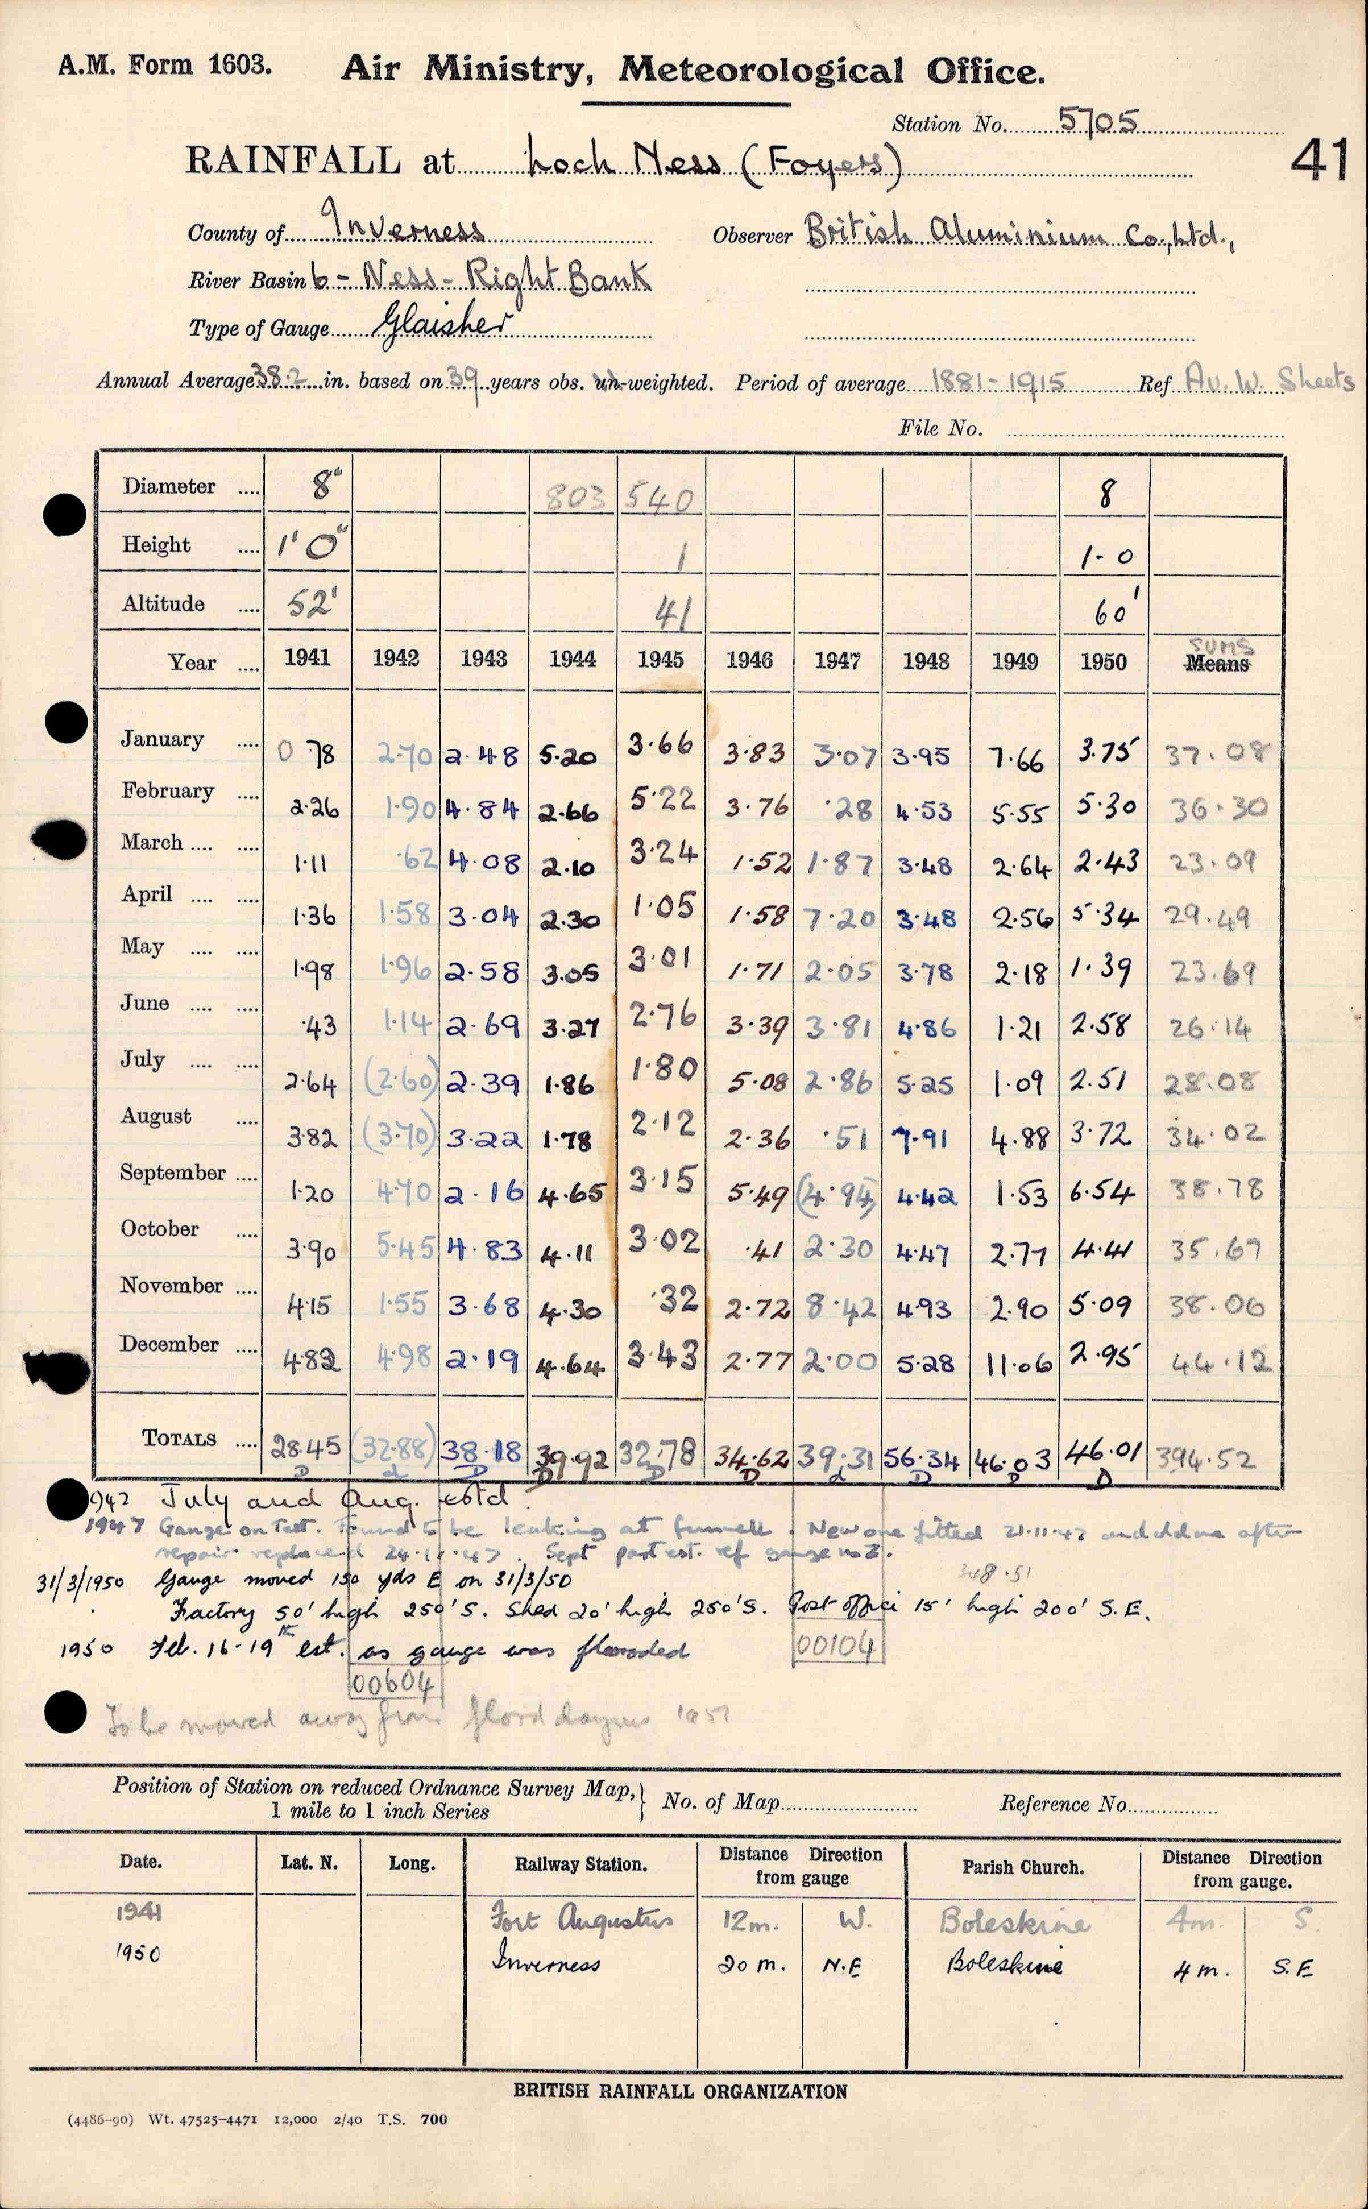 A.M. Form 1603. Air Ministry, Meteorological Office.
Station No. 5705
41
RAINFALL at Loch Ness (Foyers)
County of Inverness Observer British Aluminium Co., Ltd.,
River Basin 6 - Ness - Right Bank
Type of Gauge Glaisher
Annual Average 38.2 in. based on 39 years obs. un-weighted. Period of average 1881-1915 Ref Av. W. Sheets
File No.
Diameter .... 8" 803 540 8
Height .... 1' 0" 1 1-0
Altitude .... 52' 41 60'
SUMS
Year .... 1941 1942 1943 1944 1945 1946 1947 1948 1949 1950 Means
January .... 0.78 2.70 2.48 5.20 3.66 3.83 3.07 3.95 7.66 3.75 37.08
February .... 2.26 1.90 4.84 2.66 5.22 3.76 .28 4.53 5.55 5.30 36.30
March .... .... 1.11 .62 4.08 2.10 3.24 1.52 1.87 3.48 2.64 2.43 23.09
April .... .... 1.36 1.58 3.04 2.30 1.05 1.58 7.20 3.48 2.56 5.34 29.49
May .... .... 1.98 1.96 2.58 3.05 3.01 1.71 2.05 3.78 2.18 1.39 23.69
June .... .... .43 1.14 2.69 3.27 2.76 3.39 3.81 4.86 1.21 2.58 26.14
July .... .... 2.64 (2.60) 2.39 1.86 1.80 5.08 2.86 5.25 1.09 2.51 28.08
August .... 3.82 (3.70) 3.22 1.78 2.12 2.36 .51 7.91 4.88 3.72 34.02
September .... 1.20 4.70 2.16 4.65 3.15 5.49 (4.94) 4.42 1.53 6.54 38.78
October .... 3.90 5.45 4.83 4.11 3.02 .41 2.30 4.47 2.77 4.41 35.67
November .... 4.15 1.55 3.68 4.30 .32 2.72 8.42 4.93 2.90 5.09 38.06
December .... 4.82 4.98 2.19 4.64 3.43 2.77 2.00 5.28 11.06 2.95 44.12
TOTALS .... 28.45 (32.88) 38.18 39.92 32.78 34.62 39.31 56.34 46.03 46.01 394.52
D d D D D D d D D D
1942 July and Aug. estd.
1947 Gauge on Test. Found to be leaking at funnell. New one fitted 21.11.47 and old one after
repair replaced 24.11.47. Sept part est. ref gauge no 2.
348.51
31/3/1950 Gauge moved 150 yds E on 31/3/50
Factory 50' high 250' S. Shed 20' high 250' S. Post office 15' high 200' S.E.
1950 Feb. 16-19th est. as gauge was flooded
00104
00604
To be moved away from flood 1951
Position of Station on reduced Ordnance Survey Map, } No. of Map Reference No.
1 mile to 1 inch Series
Date. Lat. N. Long. Railway Station. Distance Direction from gauge Parish Church. Distance Direction from gauge.
1941 Fort Augustus 12m. W. Boleskine 4m. S.
1950 Inverness 20 m. N.E Boleskine 4 m. S.E
BRITISH RAINFALL ORGANIZATION
(4486-90) Wt. 47525-4471 12,000 2/40 T.S. 700